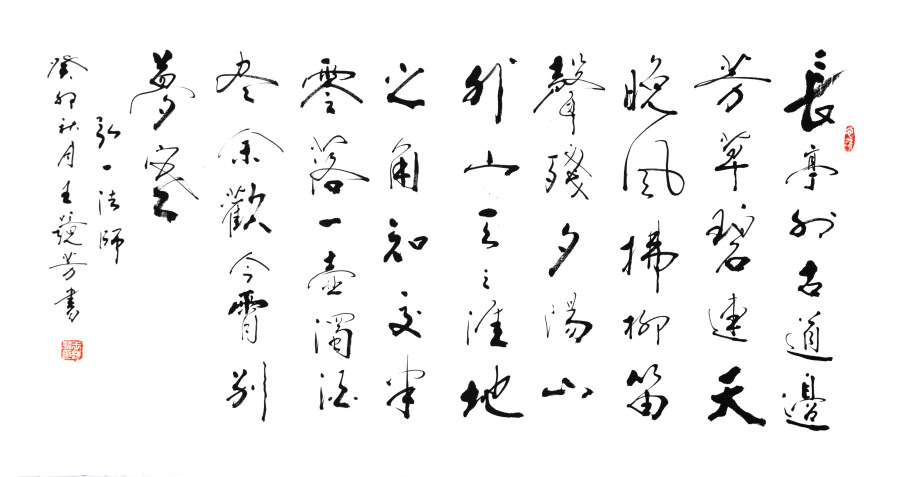 長亭外古道邊
芳草碧連天
晚風拂柳笛
聲殘夕陽山
外山天之涯地
之角知交半
零落一壺濁酒
尽余歡今霄別
夢寒
弘一法師
癸卯秋月王芳書